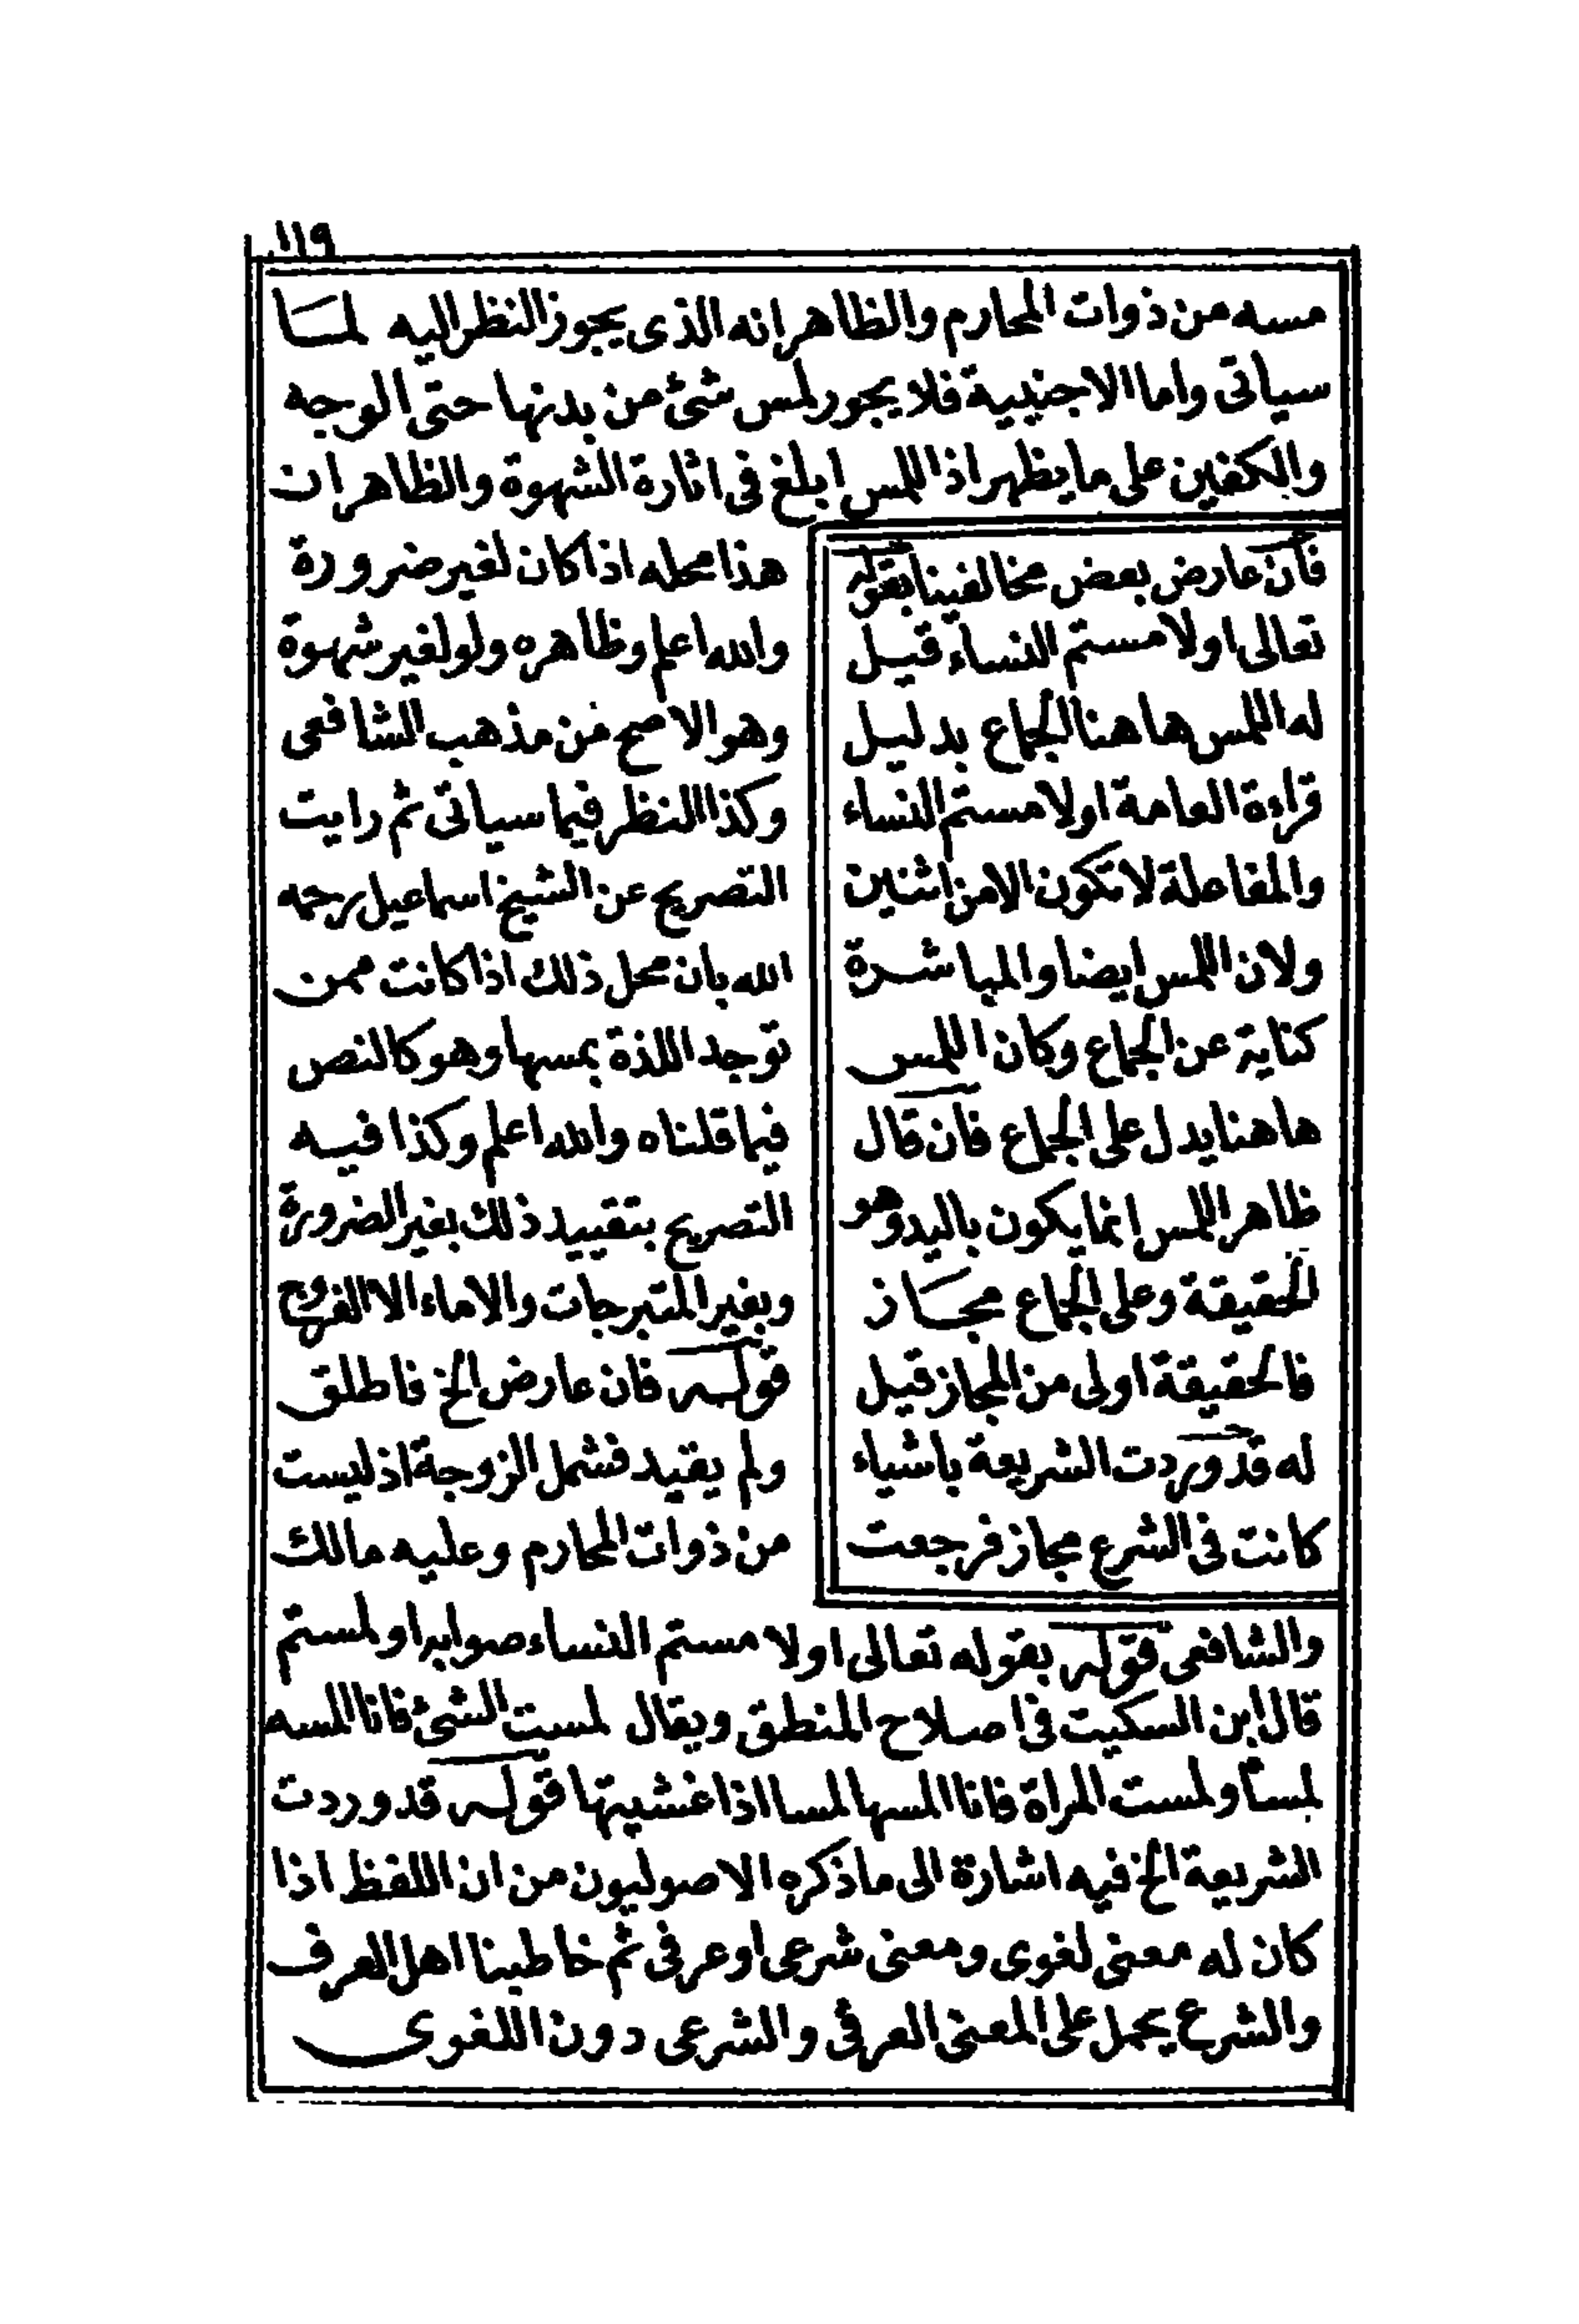 ١١٩
مسه من ذوات المحارم والظاهر انه الذى يجوز النظر اليه لمسا
سياتى واما الاجنبية فلا يجور لمس شئ من بدنها حتى الوجه
والكفين على ما يظهر اذ اللمس ابلغ فى اثارة الشهوة والظاهر ان
فان عارض بعض مخالفينا بقوله
تعالى اولا مستم النساء قيل
له اللمس هاهنا الجماع بدليل
قراءة العامة اولا مستم النساء
والمفاعلة لا تكون الا من اثنين
ولان اللمس ايضا والمباشرة
كناية عن الجماع وكان اللمس
هاهنا يدل على الجماع فان قال
ظاهر اللمس انما يكون باليد وهو
الحقيقة وعلى الجماع مجاز
فالحقيقة اولى من المجاز قيل
له قد وردت الشريعة باشياء
كانت فى الشرع مجاز فرجعت
هذا محله اذا كان لغير ضرورة
والله اعلم وظاهره ولو لغير شهوة
وهو الاصح من مذهب الشافعى
وكذا النظر فيما سياتى ثم رايت
التصريح عن الشيخ اسماعيل رحمه
الله بان محل ذلك اذا كانت ممن
توجد اللذة بمسها وهو كالنص
فيما قلناه والله اعلم وكذا فيه
التصريح بتقييد ذلك بغير الضرورة
وبغير المتبرجات والاماء الا الفروج
قوله فان عارض الخ فاطلق
ولم يقيد فشمل الزوجة اذ ليست
من ذوات المحارم وعليه مالك
والشافعى قوله بقوله تعالى اولا مستم النساء صوابه او لمستم
قال ابن السكيت فى اصلاح المنطق ويقال لمست الشئ فانا المسه
لمسا ولمست المراة فانا المسها لمسا اذا غشيتها قوله قد وردت
الشريعة الخ فيه اشارة الى ما ذكره الاصوليون من ان اللفظ اذا
كان له معنى لغوى ومعنى شرعى او عرفى ثم خاطبنا اهل العرف
والشرع يحمل على المعنى العرفى والشرعى دون اللغوى